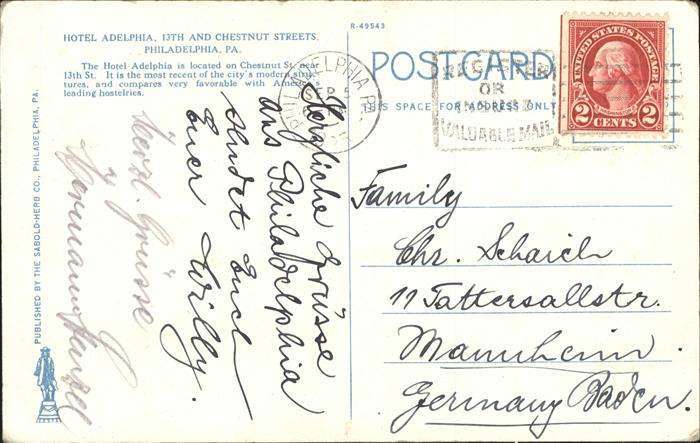 R-49543
HOTEL ADELPHIA, 13TH AND CHESTNUT STREETS,
PHILADELPHIA, PA.
The Hotel Adelphia is located on Chestnut St. near
13th St. It is the most recent of the city's modern struc-
tures, and compares very favorable with
leading hostelries.
PUBLISHED BY THE SABOLD-HERB CO., PHILADELPHIA, PA.
Herzliche Grüsse
aus Philadelphia
sendet Euch
Euer Willy.
Herzl. Grüsse
Hermann
POSTCARD
THIS SPACE FOR ADDRESS ONLY
PHILADELPHIA PA.
SEP 5
OR
VALUABLE MAIL
UNITED STATES POSTAGE
2 2
CENTS
Family
Chr. Schaich
11 Tattersallstr.
Mannheim
Germany Baden.